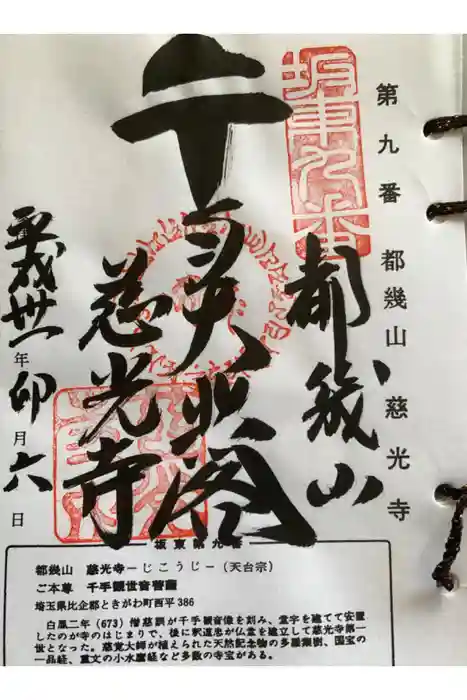 第九番 都幾山 慈光寺
坂東九番
都幾山
千手大悲閣
慈光寺
平成卅一年卯月六日
坂東第九番
都幾山 慈光寺―じこうじ―(天台宗)
ご本尊 千手観世音菩薩
埼玉県比企郡ときがわ町西平386
白鳳二年(673)僧慈訓が千手観音像を刻み、堂宇を建てて安置
したのが寺のはじまりで、後に釈道忠が仏堂を建立して慈光寺第一
世となった。慈覚大師が植えられた天然記念物の多羅葉樹、国宝の
一品経、重文の小水麿経など多数の寺宝がある。